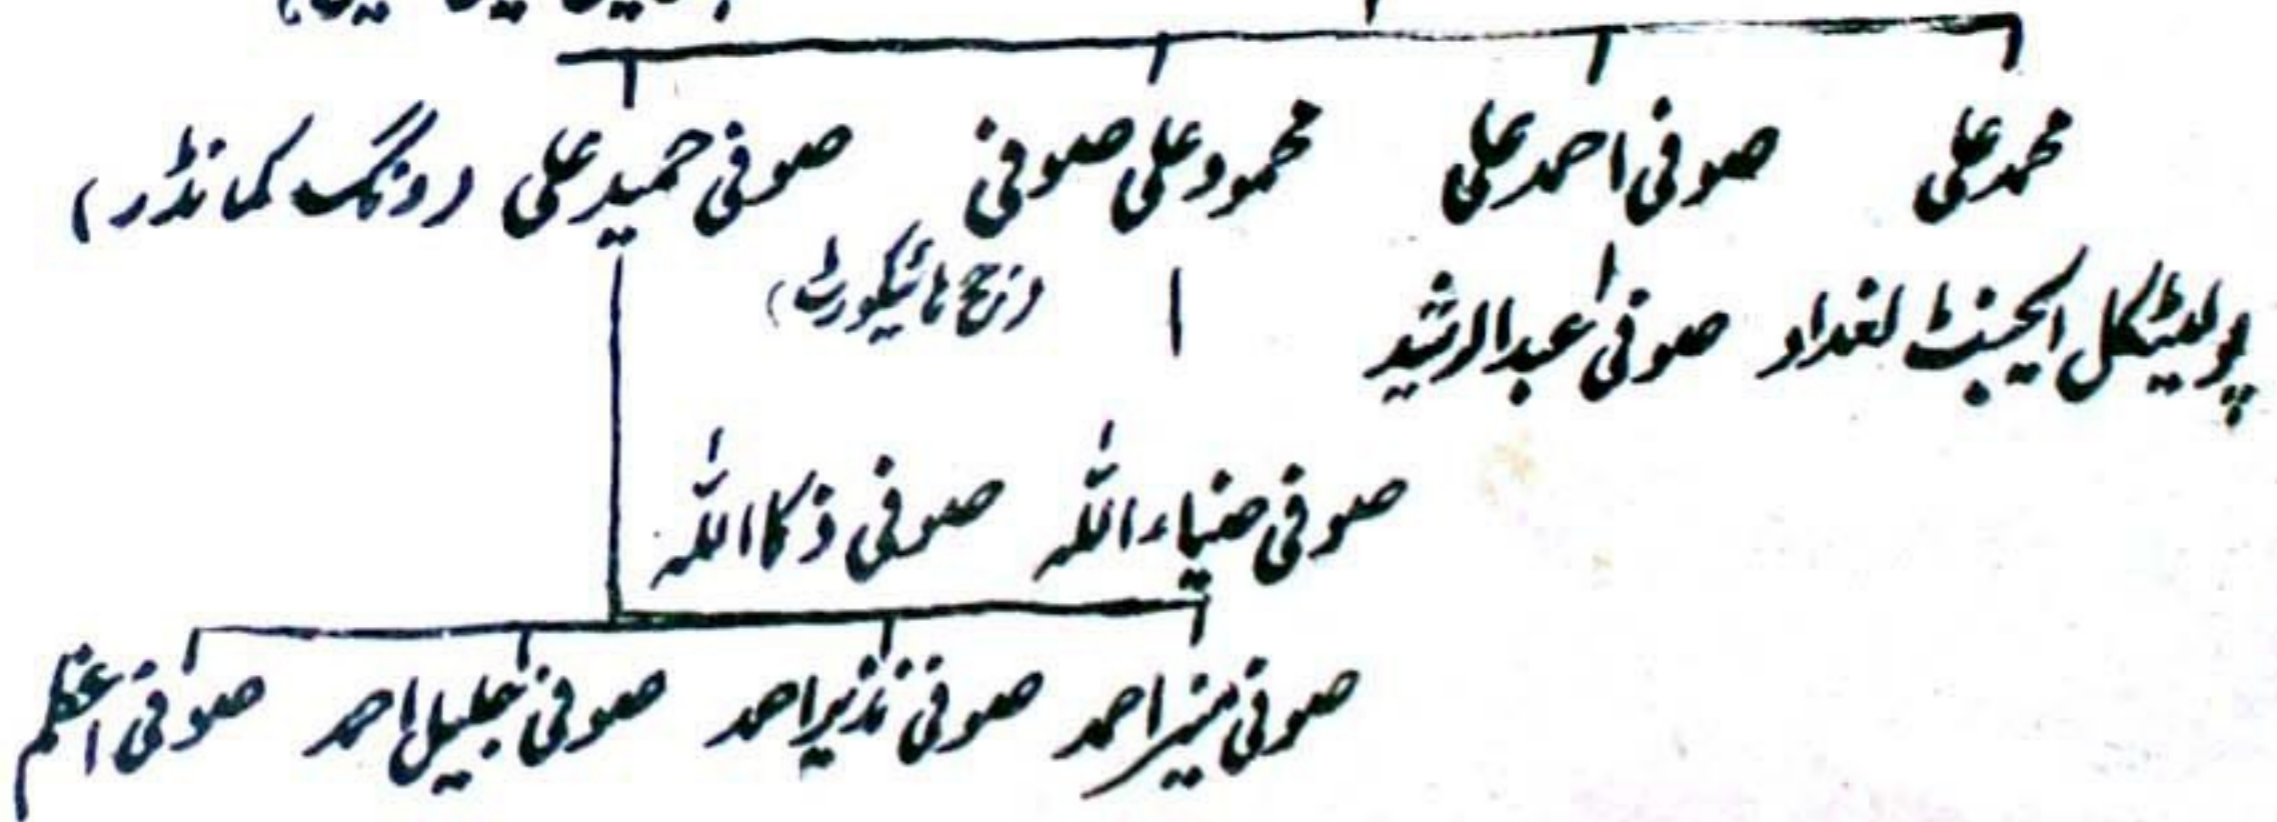 محمد علی صوفی احمد علی محمود علی صوفی صوفی حمید علی (ونگ کمانڈر)
(جج ہائیکورٹ)
پولیٹیکل ایجنٹ بغداد صوفی عبدالرشید
صوفی ضیاء اللہ صوفی ذکا اللہ
صوفی منیر احمد صوفی نذیر احمد صوفی جلیل احمد صوفی اعظم